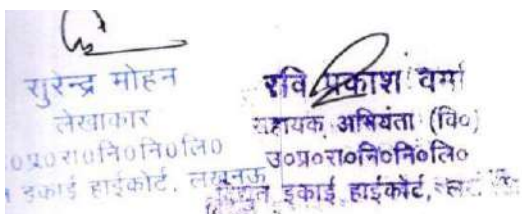 सुरेन्द्र मोहन
लेखाकार
उ०प्र०रा०नि०नि०लि०
इकाई हाईकोर्ट, लखनऊ
रवि प्रकाश वर्मा
सहायक अभियंता (वि०)
उ०प्र०रा०नि०नि०लि०
विद्युत इकाई हाईकोर्ट,